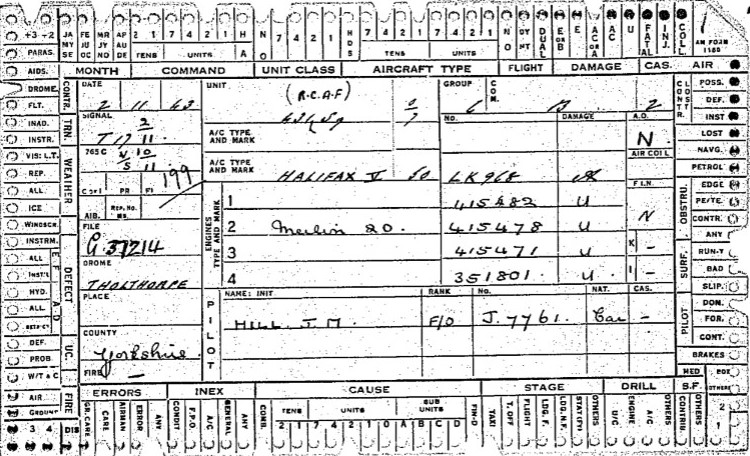 +3 +2 JA MY SE FE JU OC MR JY NO AP AU DE 2 1 7 4 2 1 H A NO 7 4 2 1 HDS 7 4 2 1 7 4 2 1 NO DY NT DUAL E OR B E AC OR A AC U FATAL INJ. COLL. AM FORM 1180
PARAS. TENS UNITS TENS UNITS
AIDS. MONTH COMMAND UNIT CLASS AIRCRAFT TYPE FLIGHT DAMAGE CAS. AIR
DROME. CONTR. DATE UNIT (R.C.A.F) GROUP COM. CONSTR. POSS.
FLT. 2 11 43 431 6 B 2 DEF.
INAD. TRN. SIGNAL NO. DAMAGE A.O. INST
INSTR. T 17 11 A/C TYPE AND MARK N LOST
VIS: L.T. WEATHER 765 C AIR COIL NAVG.
REP. A/C TYPE AND MARK HALIFAX V LK968 PETROL
ALL CAT PR FI 199 1 415482 U F I.N. OBSTRU. EDGE
ICE AIB. REP. NO. ENGINES TYPE AND MARK 2 Merlin 20. 415478 U N PE/TE.
WINDSCN FILE CONTR.
INSTRM. DEFECT G.37214 3 415471 U K - ANY
ALL DROME SURF. RUN-Y
INST'L THOLTHORPE 4 351801. U I - BAD
HYD. PLACE PILOT NAME: INIT RANK NO. NAT. CAS. SLIP.
ALL HILL J.M. F/O J.7761. Can - PILOT DON.
COUNTY FOR.
DEF. UC. Yorkshire CONT.
PROB. FIRE — BRAKES
W/T & C MED
AIR FIRE ERRORS INEX CAUSE STAGE DRILL S.F. OTHERS
GROUND GR. CARE CARE AIRMAN ERROR ANY CONDIT F.P.O. A/C GENERAL ANY COMB. TENS UNITS SUB UNITS FIN-D TAXI T. OFF FLIGHT LDG. F. LDG. N.F. STAT(PY) OTHERS U/C ENGINE A/C OTHERS CONTRIB OTHERS 2
3 4 DIS 2 1 7 4 2 1 A B C D 1